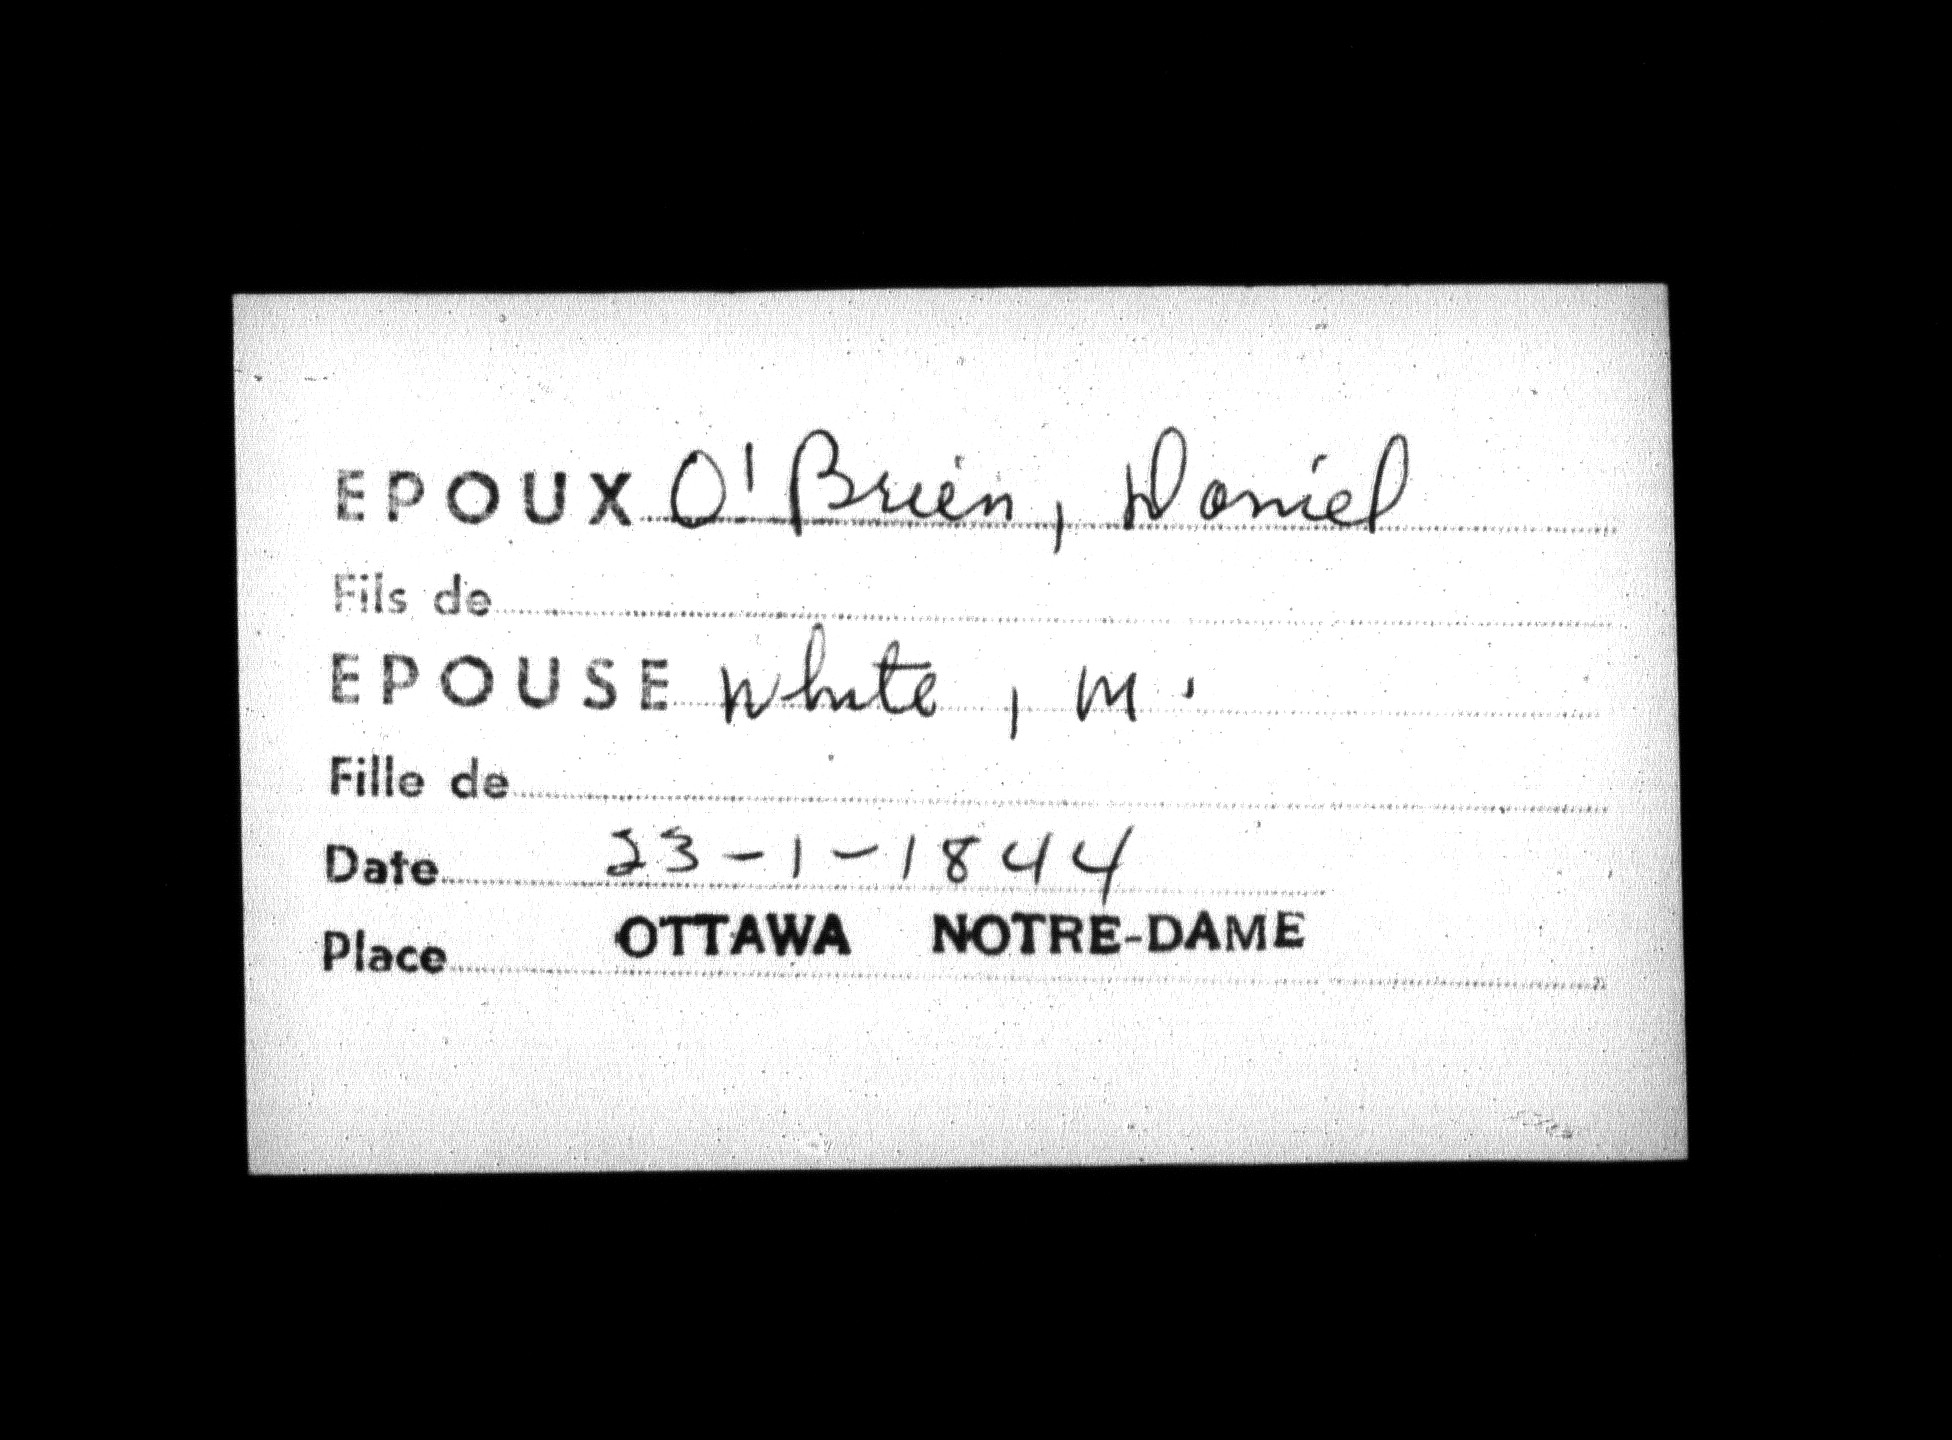 EPOUX O'Brien, Daniel
Fils de
EPOUSE White, M.
Fille de
Date 23-1-1844
Place OTTAWA NOTRE-DAME